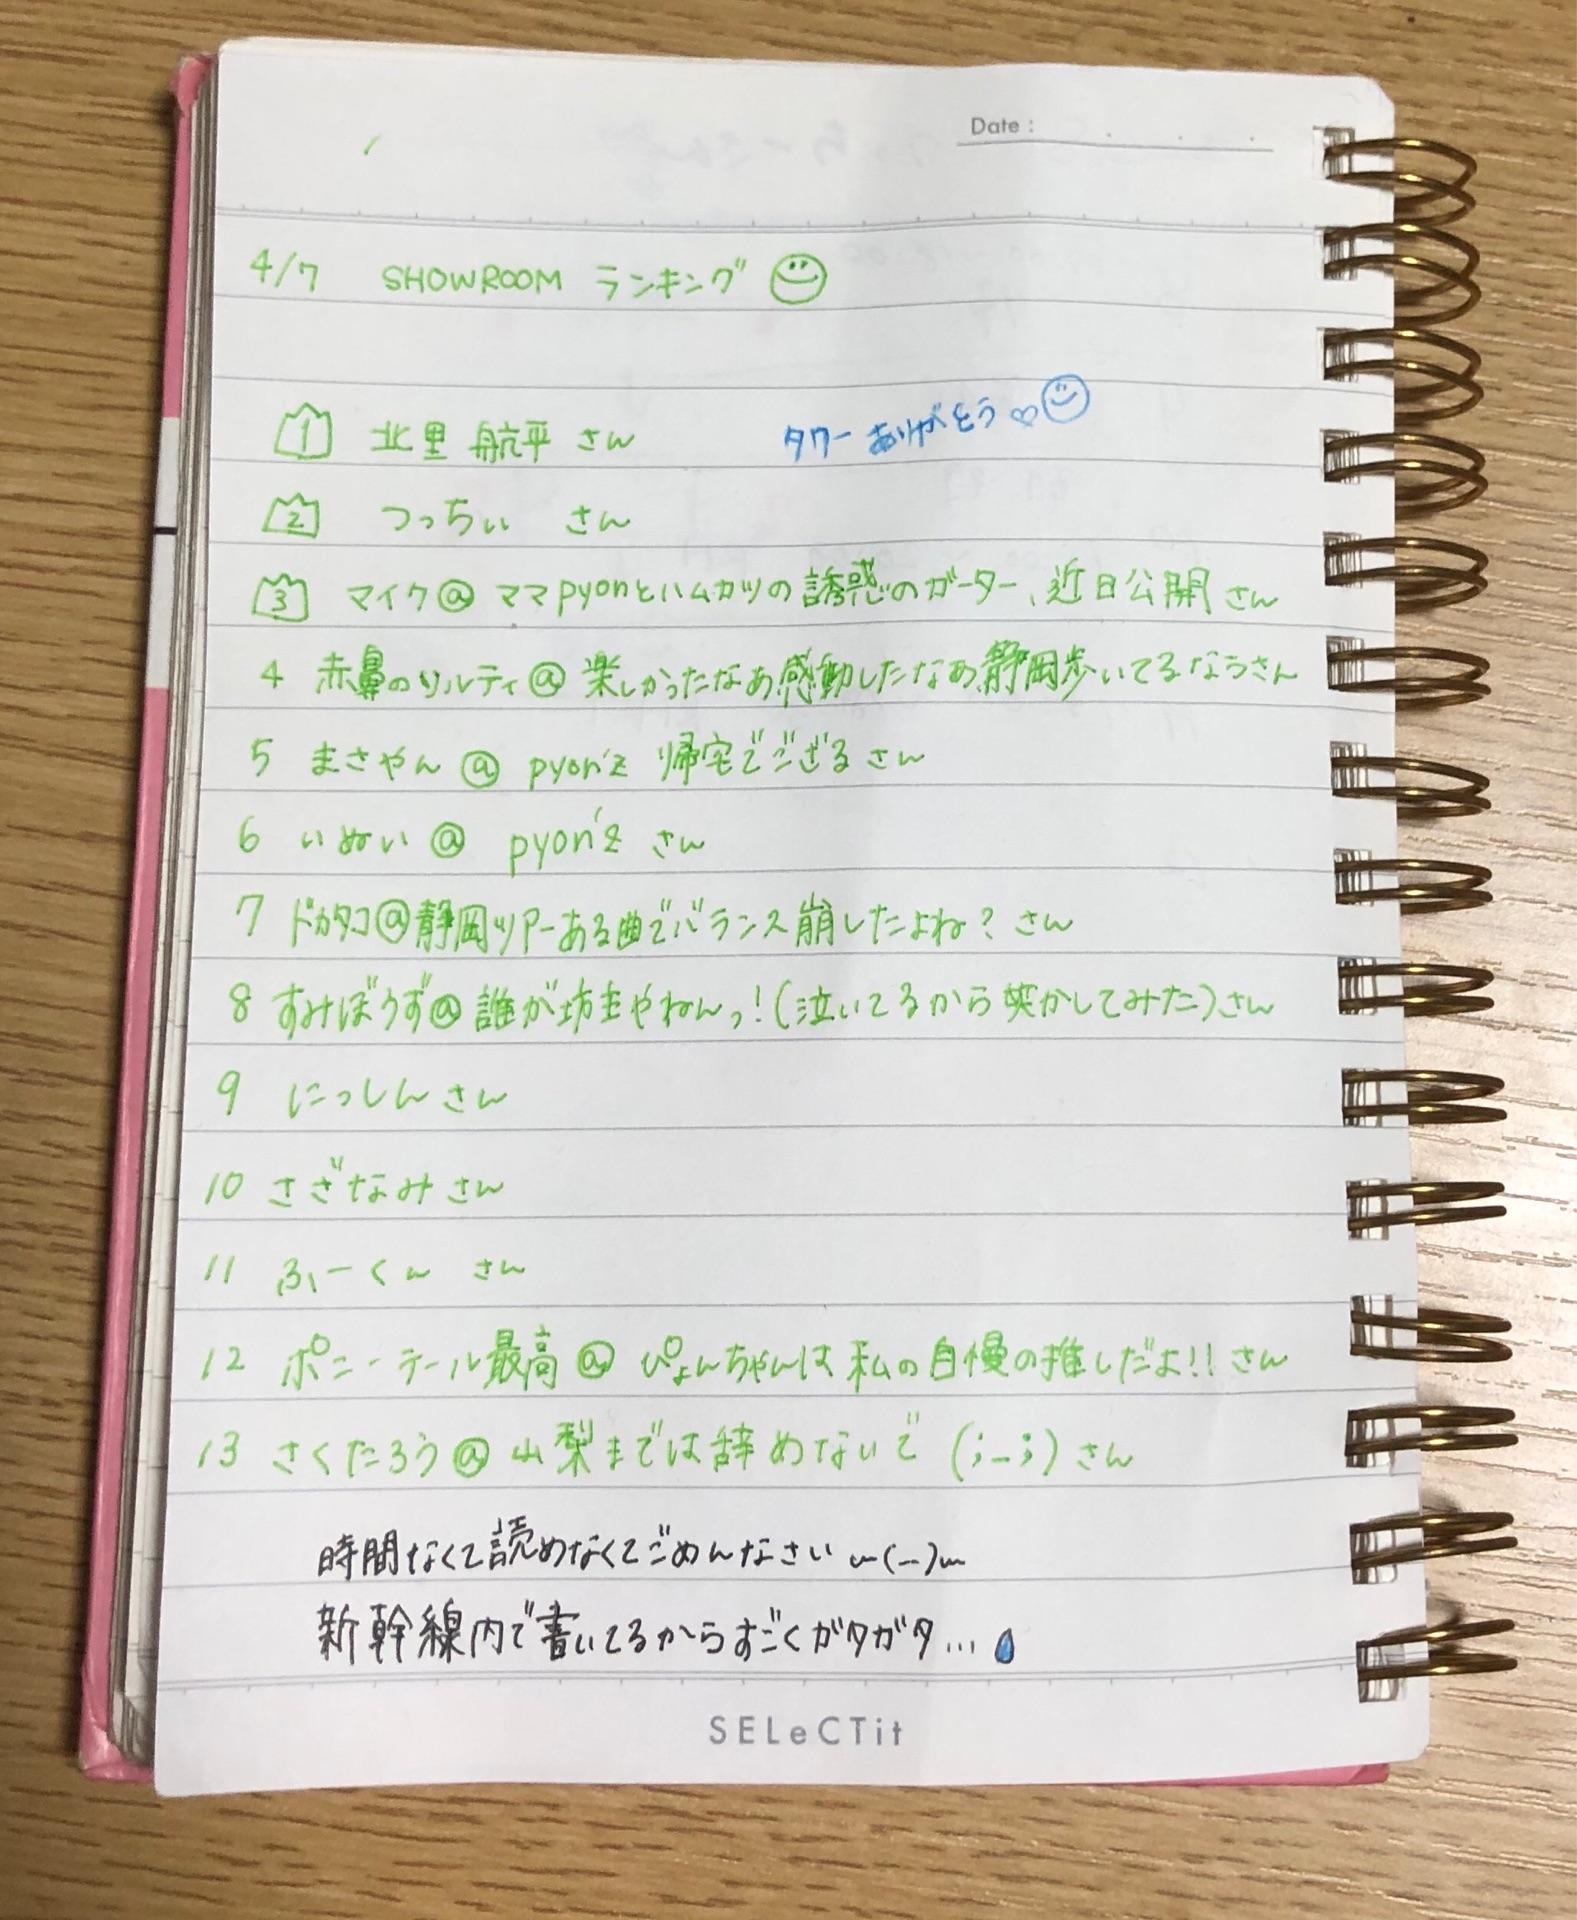 Date :
4/7 SHOWROOM ランキング
1 北里 航平 さん タワー ありがとう♡
2 つっちぃ さん
3 マイク@ ママpyonとハムカツの誘惑のガーター、近日公開 さん
4 赤鼻のソルティ@ 楽しかったなあ感動したなあ静岡歩いてるなうさん
5 まさやん @ pyon'z 帰宅でござる さん
6 いぬい @ pyon'z さん
7 ドカタコ@静岡ツアーある曲でバランス崩したよね? さん
8 すみぼうず@ 誰が坊主やねんっ!(泣いてるから笑かしてみた)さん
9 にっしん さん
10 さざなみ さん
11 ふーくん さん
12 ポニーテール最高 @ ぴょんちゃんは 私の自慢の推しだよ!! さん
13 さくたろう@ 山梨までは辞めないで (;_;) さん
時間なくて読めなくてごめんなさい m(_)m
新幹線内で書いてるからすごくガタガタ...
SELeCTit